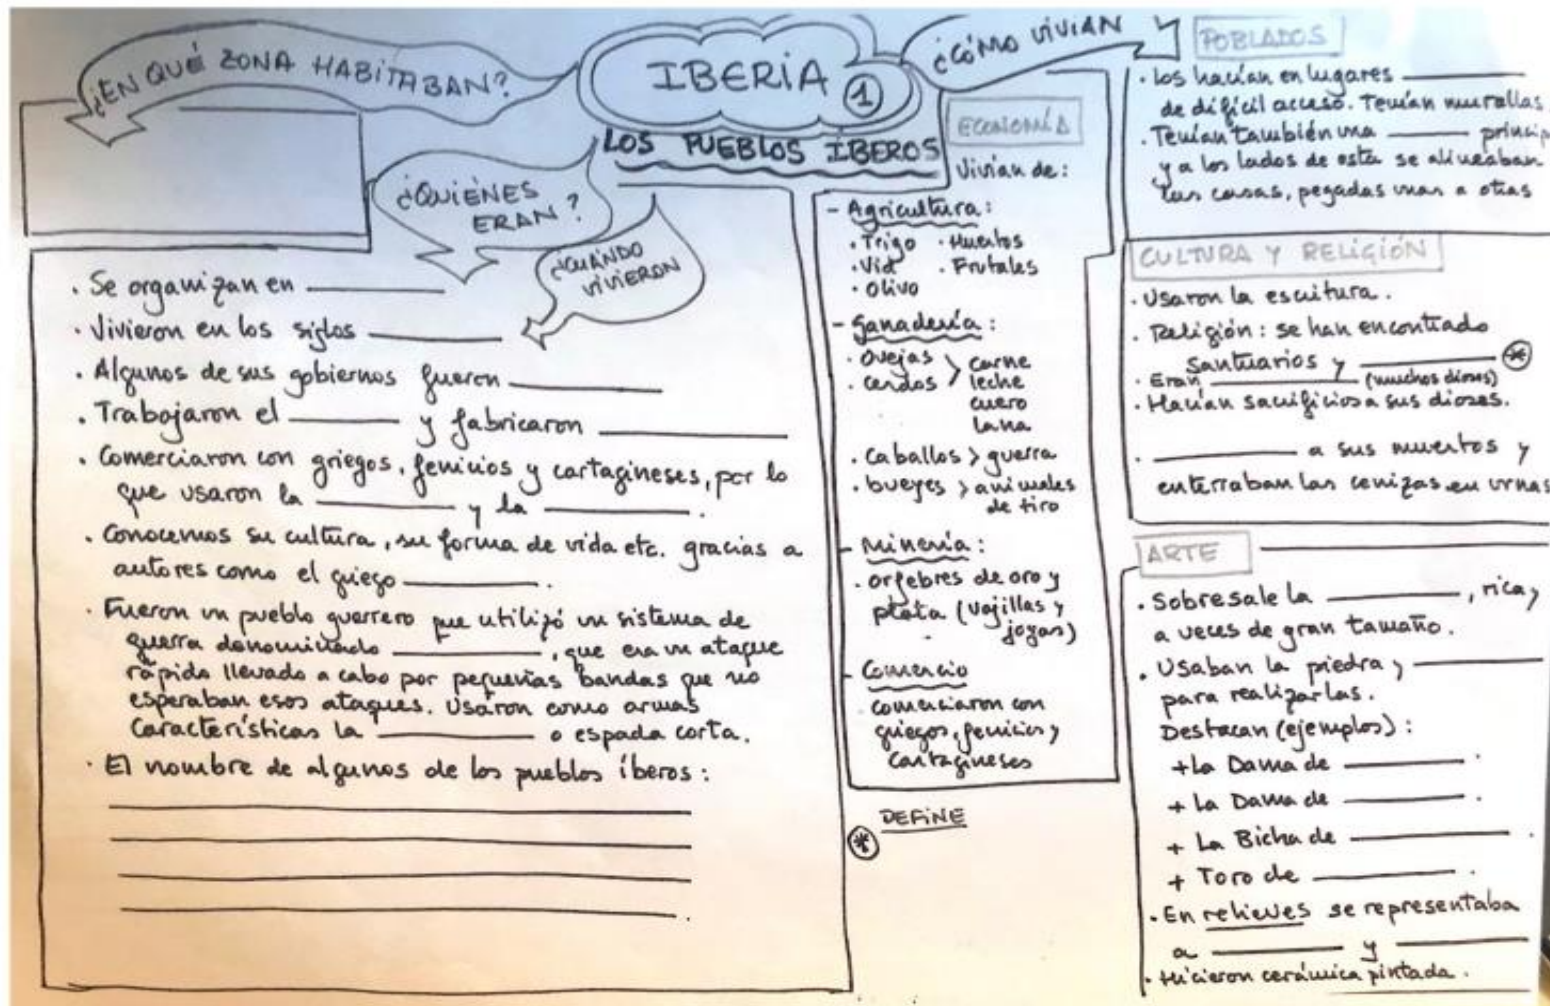 IBERIA ①
LOS PUEBLOS ÍBEROS
¿EN QUÉ ZONA HABITABAN?
¿QUIÉNES
ERAN?
¿CUÁNDO
VIVIERON
· Se organizan en ________
· Vivieron en los siglos ________
· Algunos de sus gobiernos fueron ________
· Trabajaron el ________ y fabricaron ________
· Comerciaron con griegos, fenicios y cartagineses, por lo
que usaron la ________ y la ________.
· Conocemos su cultura, su forma de vida etc. gracias a
autores como el griego ________.
· Fueron un pueblo guerrero que utilizó un sistema de
guerra denominado ________, que era un ataque
rápido llevado a cabo por pequeñas bandas que no
esperaban esos ataques. Usaron como armas
características la ________ o espada corta.
· El nombre de algunos de los pueblos íberos:
¿CÓMO VIVIAN
ECONOMÍA
Vivian de:
- Agricultura:
· Trigo · Huertos
· Vid · Frutales
· Olivo
- Ganadería:
· Ovejas > carne
· cerdos leche
cuero
lana
· Caballos > guerra
· bueyes > animales
de tiro
- Minería:
· orfebres de oro y
plata (vajillas y
joyas)
- Comercio
comerciaron con
griegos, fenicios y
cartagineses
* DEFINE
POBLADOS
· Los hacían en lugares ________
de difícil acceso. Tenían murallas
· Tenían también una ________ princip
y a los lados de esta se alineaban
las casas, pegadas unas a otras
CULTURA Y RELIGIÓN
· Usaron la escritura.
· Religión: se han encontrado
santuarios y ________ *
· Eran ________ (muchos dioses)
· Hacían sacrificios a sus dioses.
· ________ a sus muertos y
enterraban las cenizas en urnas
ARTE
· Sobresale la ________, rica y
a veces de gran tamaño.
· Usaban la piedra y ________
para realizarlas.
Destacan (ejemplos):
+ La Dama de ________.
+ La Dama de ________.
+ La Bicha de ________.
+ Toro de ________.
· En relieves se representaba
a ________ y ________
· Hicieron cerámica pintada.